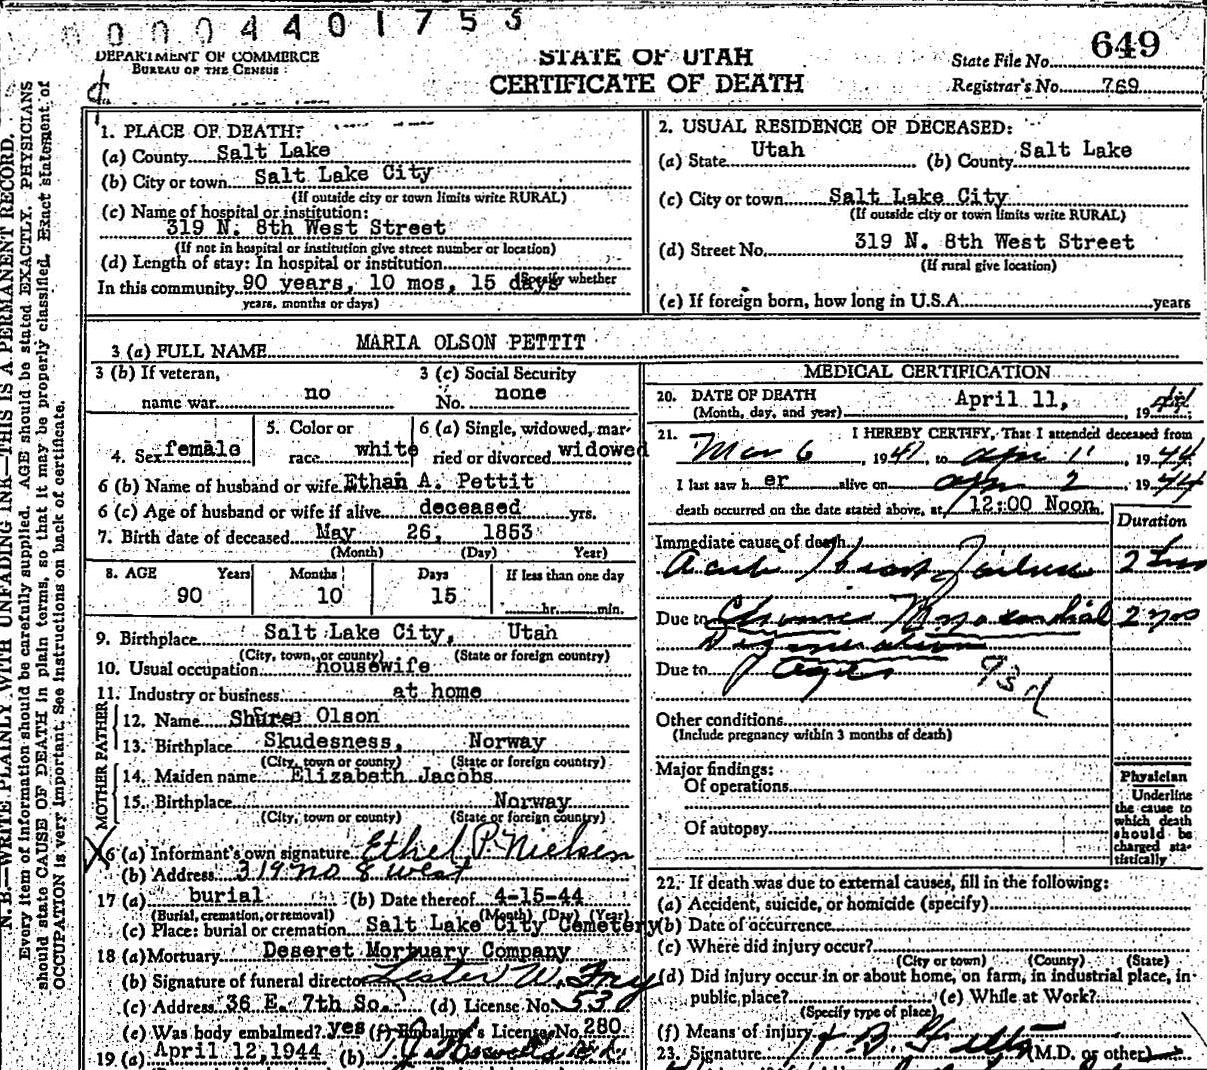 0004401753
DEPARTMENT OF COMMERCE
BUREAU OF THE CENSUS
STATE OF UTAH
CERTIFICATE OF DEATH
State File No. 649
Registrar's No. 769
N. B.—WRITE PLAINLY WITH UNFADING INK—THIS IS A PERMANENT RECORD.
Every item of information should be carefully supplied. AGE should be stated EXACTLY. PHYSICIANS
should state CAUSE OF DEATH in plain terms, so that it may be properly classified. Exact statement of
OCCUPATION is very important. See instructions on back of certificate.
1. PLACE OF DEATH:
(a) County Salt Lake
(b) City or town Salt Lake City
(If outside city or town limits write RURAL)
(c) Name of hospital or institution:
319 N. 8th West Street
(If not in hospital or institution give street number or location)
(d) Length of stay: In hospital or institution
(Specify whether
In this community 90 years, 10 mos, 15 days
years, months or days)
2. USUAL RESIDENCE OF DECEASED:
(a) State Utah (b) County Salt Lake
(c) City or town Salt Lake City
(If outside city or town limits write RURAL)
(d) Street No. 319 N. 8th West Street
(If rural give location)
(e) If foreign born, how long in U.S.A. years
3 (a) FULL NAME MARIA OLSON PETTIT
3 (b) If veteran, 3 (c) Social Security
name war no No. none
4. Sex female 5. Color or race white 6 (a) Single, widowed, married or divorced widowed
6 (b) Name of husband or wife Ethan A. Pettit
6 (c) Age of husband or wife if alive deceased yrs.
7. Birth date of deceased May 26, 1853
(Month) (Day) Year)
8. AGE Years Months Days If less than one day
90 10 15 hr. min.
9. Birthplace Salt Lake City, Utah
(City, town, or county) (State or foreign country)
10. Usual occupation housewife
11. Industry or business at home
FATHER
12. Name Shure Olson
13. Birthplace Skudesness, Norway
(City, town or county) (State or foreign country)
MOTHER
14. Maiden name Elizabeth Jacobs
15. Birthplace Norway
(City, town or county) (State or foreign country)
16 (a) Informant's own signature Ethel P. Nielsen
(b) Address 319 no 8 west
17 (a) burial (b) Date thereof 4-15-44
(Burial, cremation, or removal) (Month) (Day) (Year)
(c) Place: burial or cremation Salt Lake City Cemetery
18 (a) Mortuary Deseret Mortuary Company
(b) Signature of funeral director Lester W. Fry
(c) Address 36 E. 7th So. (d) License No. 53
(e) Was body embalmed? yes (f) Embalmer's License No. 280
19 (a) April 12, 1944 (b)
MEDICAL CERTIFICATION
20. DATE OF DEATH April 11, 1944
(Month, day, and year)
21. I HEREBY CERTIFY, That I attended deceased from
Mar 6, 1941, to Apr 11 1944
I last saw her alive on Apr 2, 1944
death occurred on the date stated above, at 12:00 Noon.
Duration
Immediate cause of death
Acute Heart Failure 2 hrs
Due to Chronic Myocardial 2 yrs
Degeneration
Due to Age 93d
Other conditions
(Include pregnancy within 3 months of death)
Major findings:
Of operations
Of autopsy
Physician
Underline
the cause to
which death
should be
charged sta-
tistically
22. If death was due to external causes, fill in the following:
(a) Accident, suicide, or homicide (specify)
(b) Date of occurrence
(c) Where did injury occur?
(City or town) (County) (State)
(d) Did injury occur in or about home, on farm, in industrial place, in
public place? (e) While at Work?
(Specify type of place)
(f) Means of injury
23. Signature (M.D. or other)